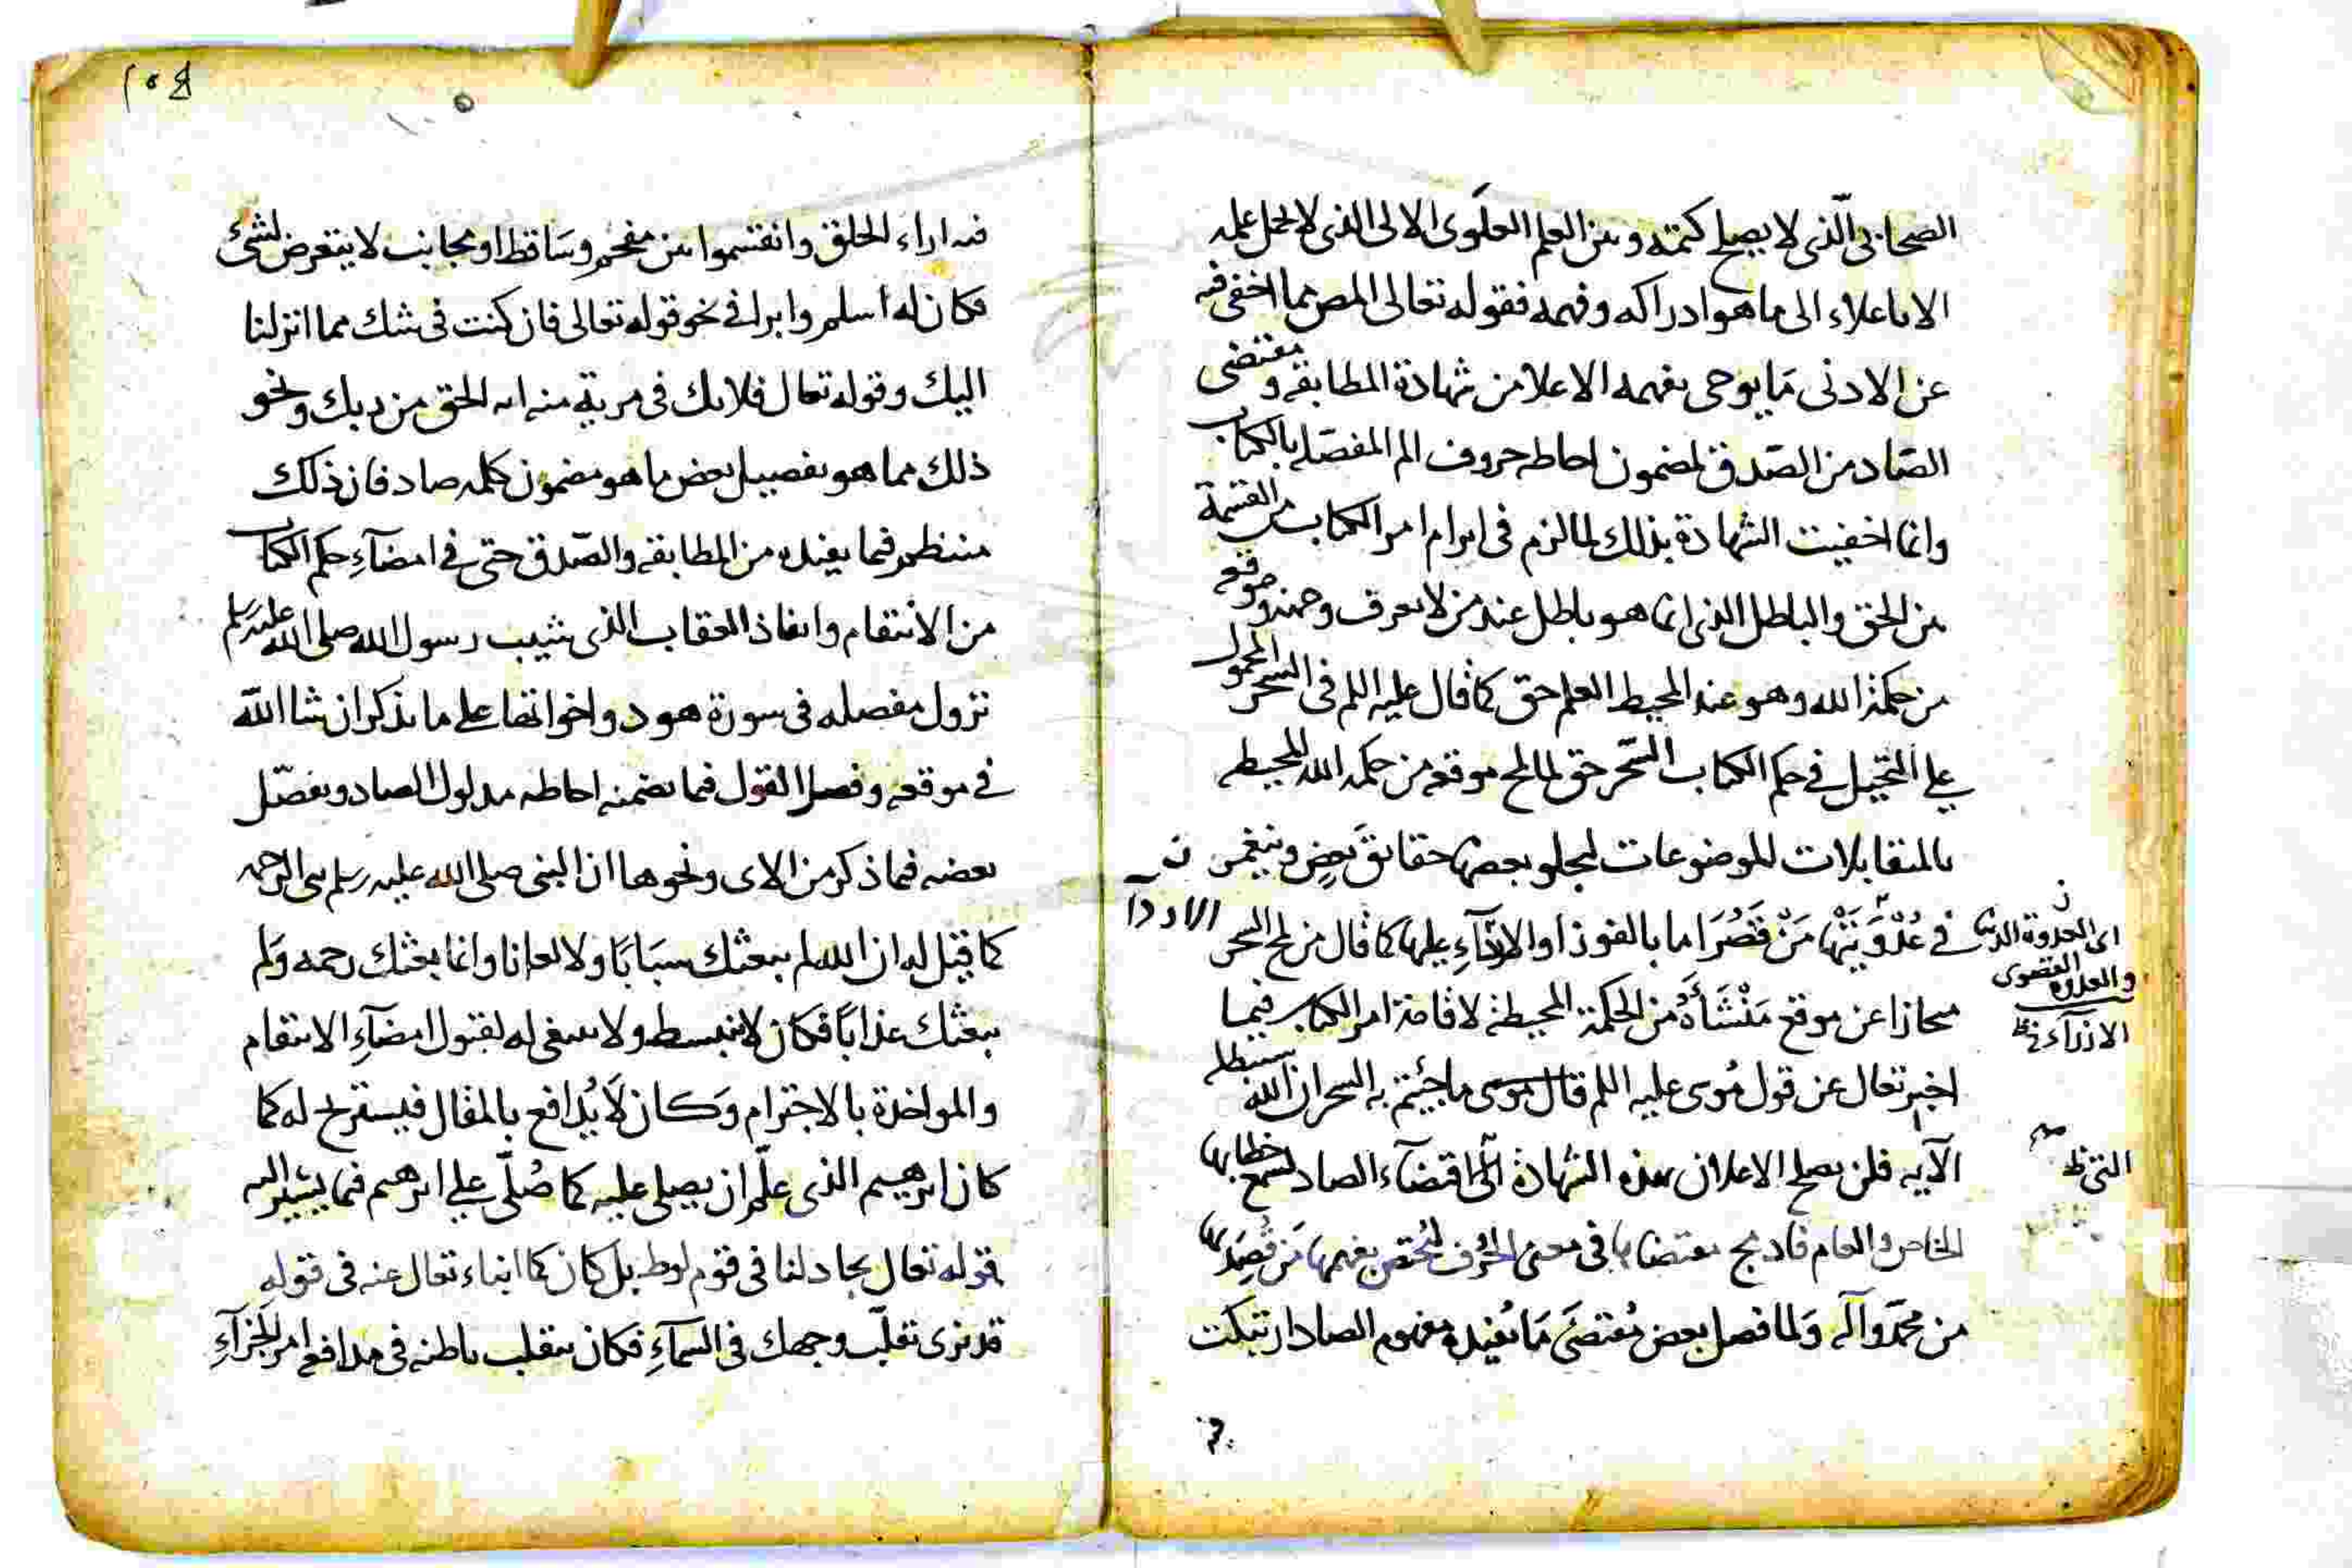 الصحابى الّذى لا يصلح كتمته وبين العلم العلَوى الالى الذى لا يحمل علمه
الا باعلاء الى ما هو ادراكه وفهمه فقوله تعالى المص مما اخفى فيه
عن الادنى مَا يوحى بفهمه الاعلا من شهادة المطابقه ومقتضى
الصّاد من الصّدق لمضمون احاطه حروف الم المفصّله بالكتاب
وانما اخفيت الشهادة بذلك لما لزم فى ابرام امر الكتاب من القسمة
بين الحق والباطل الذى انما هو باطل عند من لا يعرف وجهه وموقعه
من حكمة الله وهو عند المحيط العلم حق كما قال عليه السلم فى السحر المحمول
على التخييل فى حكم الكتاب السّحر حق لما لمح موقعه من حكمه الله المحيطه
بالمتقابلات للموضوعات ليجلو بعضها حقايقَ بَعضٍ وينغمس
فى عُدْوَيَتْها مَنْ قَصُرَ اما بالفوز او الازرآءِ عليها كما قال من لمح السحر
مجازا عن موقع مَنْشَأَهُ من الحكمة المحيطة لاقامة امر الكتاب فيما
اخبر تعالى عن قول مُوسى عليه السلم قال موسى ما جئتم به السحر ان الله سيبطله
الآيه فلن يصلح الاعلان بهذه الشهادة التى اقتضآء الصاد لتسمع خطابها
الخاص والعام فادمج مقتضاها فى معنى الحرف ليختص بفهمها مَن قُصِدَ بها
من محمّد وآله وَلما فصل بعض مُقتضىَ مَا يُفيده مفهوم الصاد ارتبكت
ن
الاردآ
اى العدوة الدنيا
والعدوة القصوى
الازرآء ظ
التى ظ
فيه اراء الخلق وانقسموا بين مفحم وسَاقط او مجانب لا يتعرض لشئ
فكان له أسلم وابرا فى نحو قوله تعالى فان كنت فى شك مما انزلنا
اليك وقوله تعالى فلا تك فى مرية منه انه الحق من ربك ونحو
ذلك مما هو تفصيل بعض ما هو مضمون كلمه صاد فان ذلك
منتظم فيما يفيده من المطابقه والصّدق حتى فى امضآءِ حكم الكتاب
من الانتقام وانفاذ العقاب الذى شيب رسول الله صلى الله عليه وسلم
نزول مفصله فى سورة هود واخواتها على ما نذكر ان شا اللّه
فى موقعه وفصل القول فيما تضمنه احاطه مدلول الصاد وتفصّل
بعضه فيما ذكر من الاى ونحوها ان النبى صلى الله عليه وسلم نبى الرحمه
كما قيل له ان الله لم يبعثك سبَابًا ولا لعانا وانما بعثك رحمه وَلم
يبعثك عذابًا فكان لا ينبسط ولا ينبغى له لقبول امضآءِ الانتقام
والمواخذة بالاجترام وَكان لَا يُدافع بالمقال فيستريح له كما
كان ابرهيم الذى علّم ان يصلى عليه كما صُلّى على ابرهيم فيما يشير اليه
قوله تعالى يجادلنا فى قوم لوط بل كان كما انباء تعالى عنه فى قوله
قد نرى تقلّب وجهك فى السمآءِ فكان يتقلب باطنه فى مدافع امر الجزآءِ